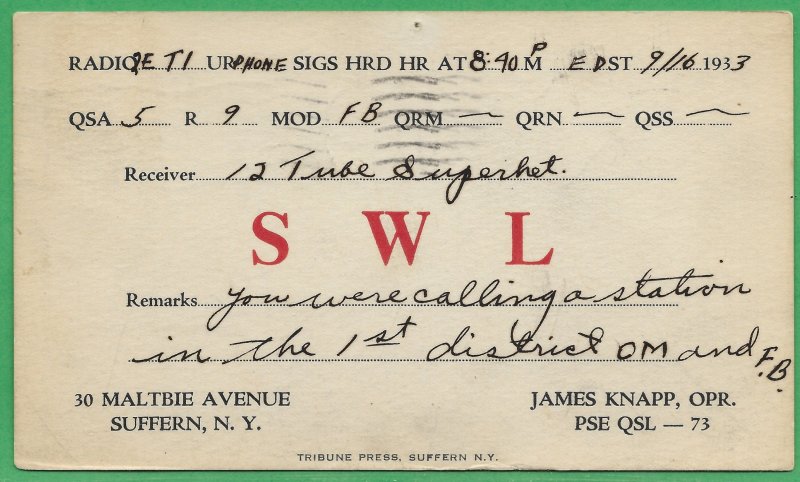 RADIO UR PHONE SIGS HRD HR AT 8:40 P M EDST. 9/16 1933
QSA 5 R 9 MOD FB QRM — QRN — QSS —
Receiver 12 Tube Superhet.
SWL
Remarks You were calling a station
in the 1st district OM and F.B.
30 MALTBIE AVENUE
SUFFERN, N. Y.
JAMES KNAPP, OPR.
PSE QSL — 73
TRIBUNE PRESS, SUFFERN N.Y.